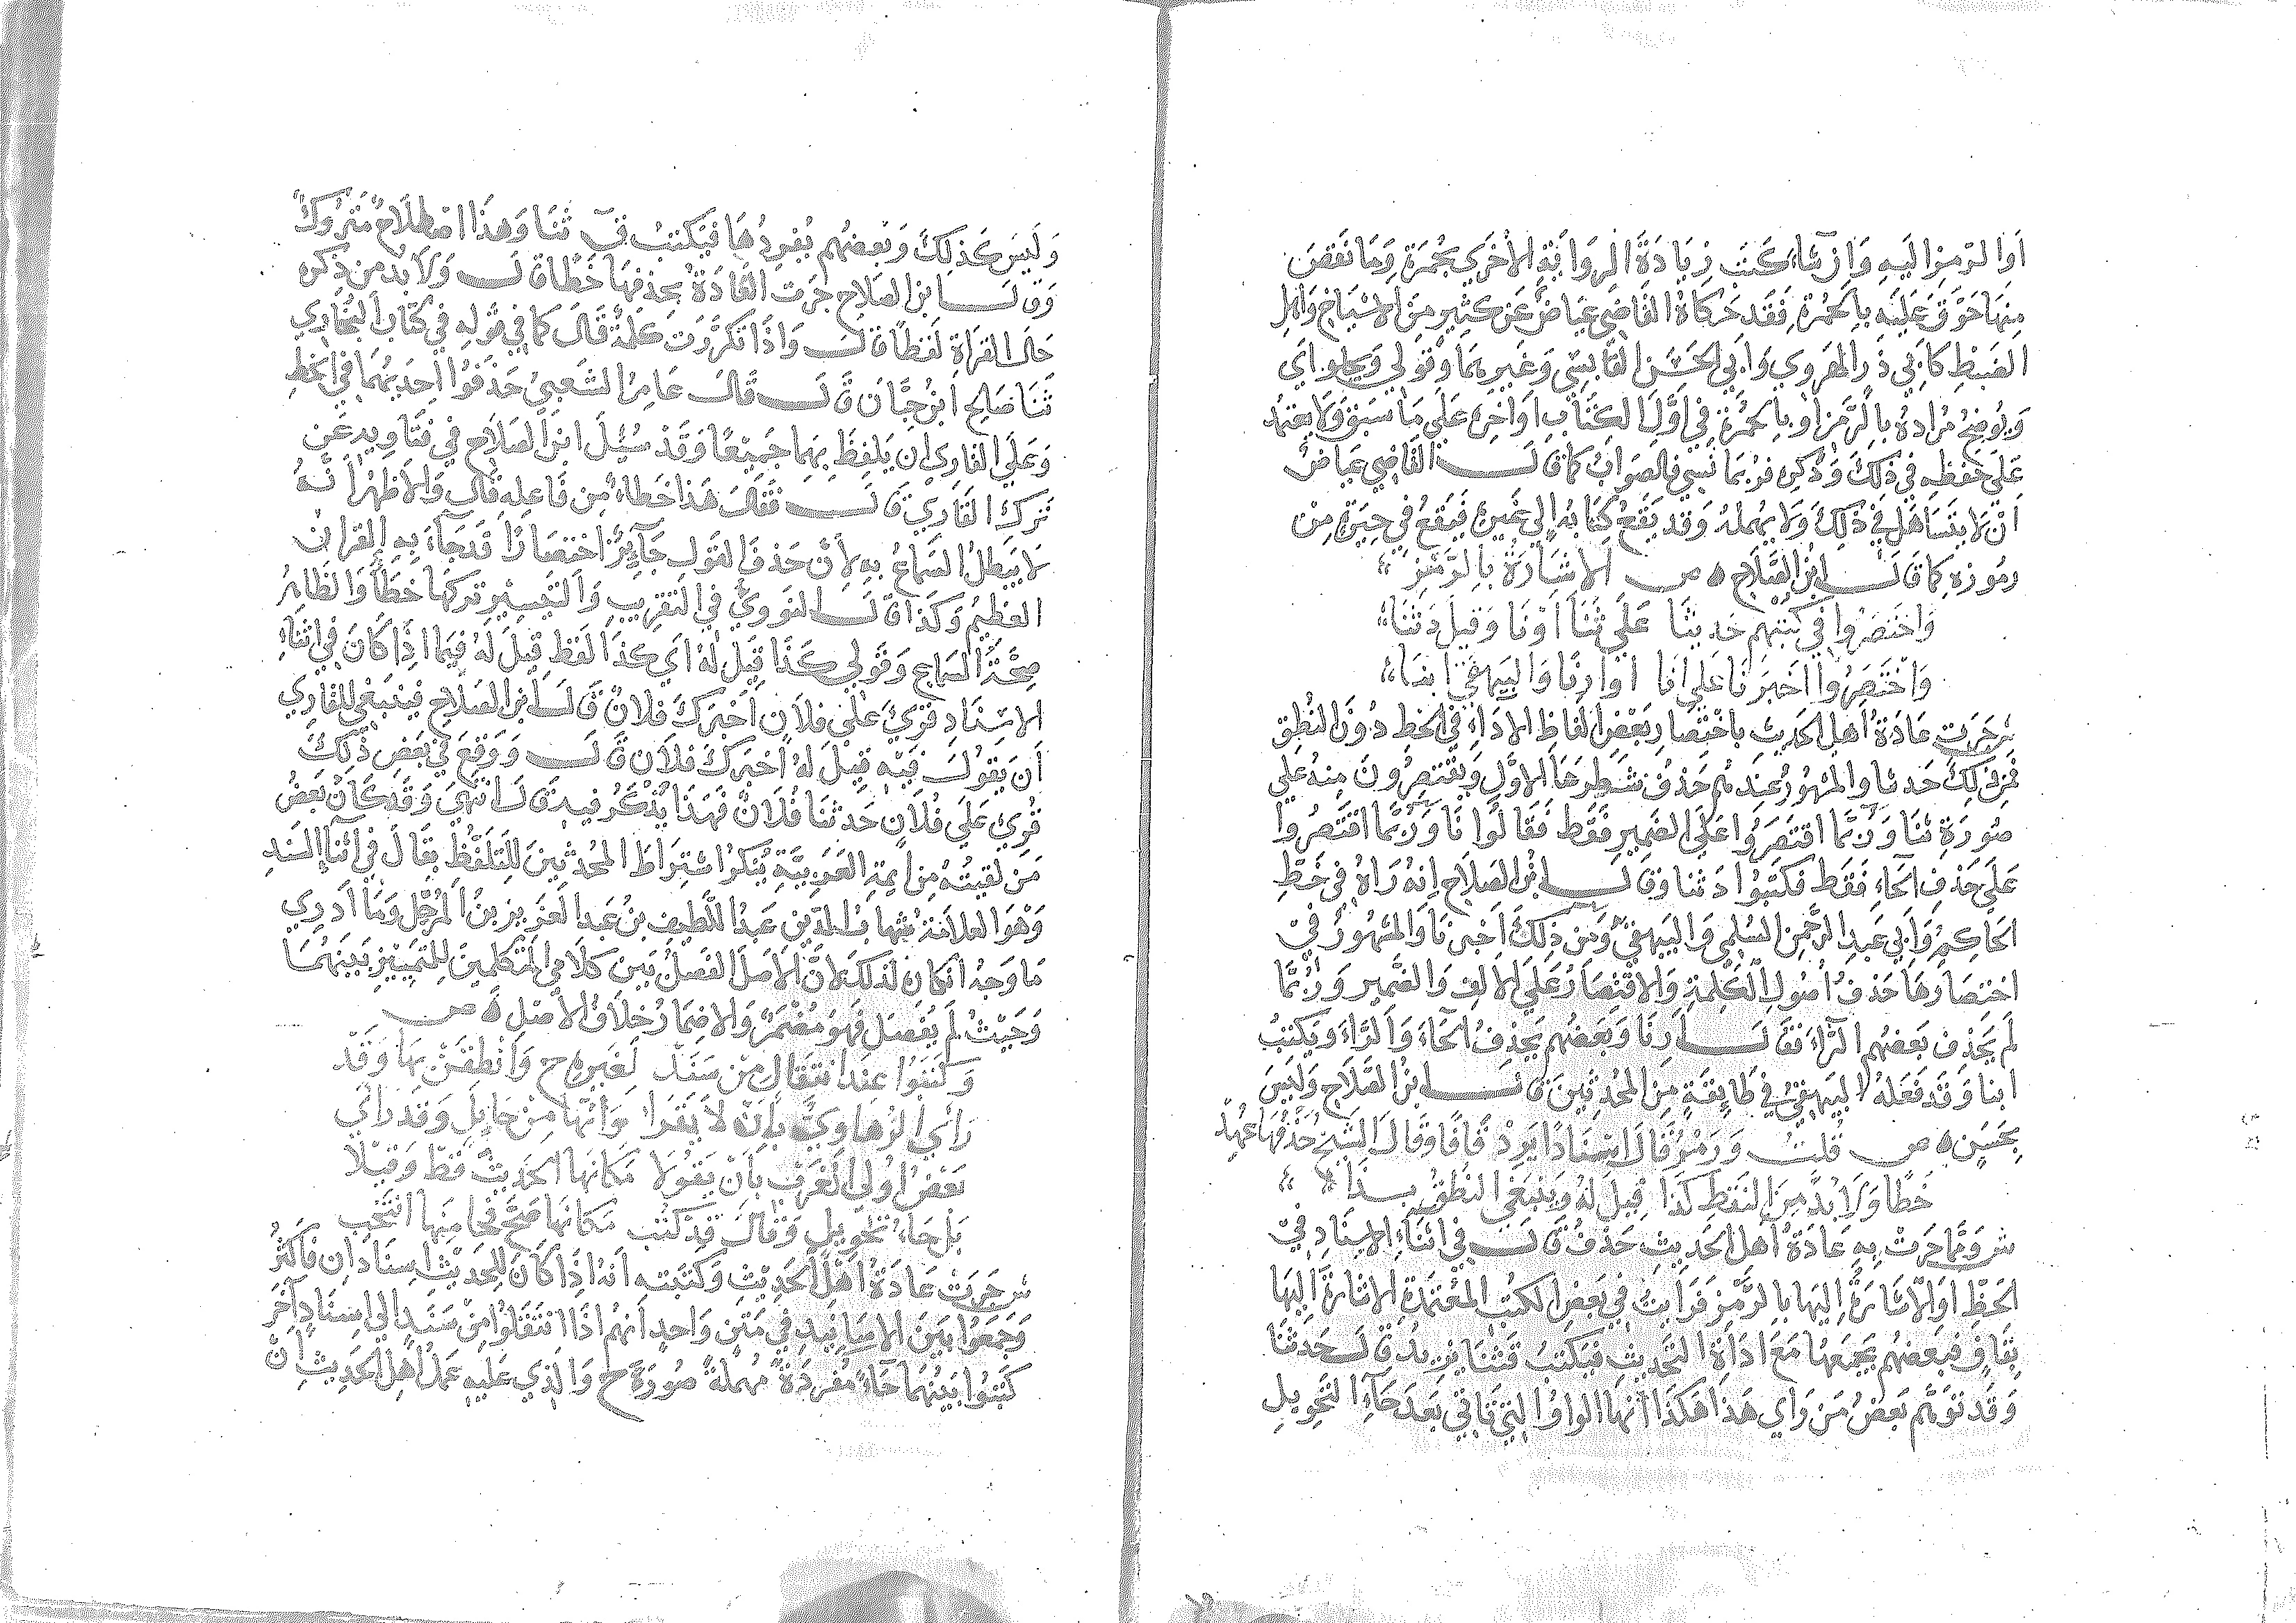 اوالرمز اليه وان شا كتب زيادة الرواية الاخرى بحمرة وما نقص
منها حوق عليه بالحمرة فقد حكاه القاضي عياض عن كثير من الاشياخ واهل
الضبط كابي ذر الهروي وابي الحسن القابسي وغيرهما وقولي ويجلو اي
ويوضح مراده بالرمز او بالحمرة في اول الكتاب او اخره على ما سبق ولا يعتمد
على حفظه في ذلك وذكره فربما نسي فالصواب كما قال القاضي عياض
ان لا يتساهل في ذلك ولا يهمله وقد يقع كتابه الى غيره فيقع في حيرة من
رموزه كما قال ابن الصلاح ه ص الاشارة بالرمز
واختصروا في كتبهم حدثنا على ثنا او نا وقيل دثنا
واختصروا اخبرنا على انا او ارنا والبيهقي ابنا
ش جرت عادة اهل الحديث باختصار بعض الفاظ الاداء في الخط دون النطق
فمن ذلك حدثنا والمشهور عندهم حذف شطرها الاول ويقتصرون منه على
صورة ثنا وربما اقتصروا على الضمير فقط فقالوا نا وربما اقتصروا
على حذف الحاء فقط فكتبوا دثنا وقال ابن الصلاح انه راه في خط
الحاكم وابي عبد الرحمن السلمي والبيهقي ومن ذلك اخبرنا والمشهور في
اختصارها حذف اصول الكلمة والاقتصار على الالف والضمير وربما
لم يحذف بعضهم الراء فقال ارنا وبعضهم يحذف الحاء والراء ويكتب
ابنا وقد فعله البيهقي في طايفة من المحدثين قال ابن الصلاح وليس
بحسن ه ص قلت ورمز قال اسنادا يرد قافا وقال الشيخ حذفها عهد
خطا ولا بد من النطق كذا قيل له وينبغي النطق بذا
ش ومما جرت به عادة اهل الحديث حذف قال في اثناء الاسناد في
الخط او الاشارة اليها بالرمز فرايت في بعض الكتب المعتمدة الاشارة اليها
بقاف فبعضهم يجمعها مع اداة التحديث فيكتب قثنا يريد قال حدثنا
وقد توهم بعض من راي هذا هكذا انها الواو التي تاتي بعد حاء التحويل
وليس كذلك وبعضهم يفردها فيكتب ق ثنا وهذا اصطلاح متروك
وقال ابن الصلاح جرت العادة بحذفها خطا قال ولا بد من ذكره
حال القراة لفظا قال واذا تكررت كلمة قال كما في قوله في كتاب البخاري
ثنا صالح ابن حيان قال قال عامر الشعبي حذفوا احديهما في الخط
وعلى القاري ان يلفظ بهما جميعا وقد سئل ابن الصلاح في فتاويه عن
ترك القاري قال فقال هذا خطاء من فاعله قال والاظهر انه
لا يبطل السماع به لان حذف القول جايز اختصارا قد جاء به القران
العظيم وكذا قال النووي في التقريب والتيسير تركها خطا والظاهر
صحة السماع وقولي كذا قيل له اي كذا لفظ قيل له فيما اذا كان في اثناء
الاسناد قرئ على فلان اخبرك فلان قال ابن الصلاح فينبغي للقاري
ان يقول فيه قيل له اخبرك فلان قال ووقع في بعض ذلك
قرئ على فلان حدثنا فلان فهذا يذكر فيه قال انتهى وقد كان بعض
من لقيته من ايمة العربية ينكر اشتراط المحدثين للتلفظ بقال في اثناء السند
وهو العلامة شهاب الدين عبد اللطيف بن عبد العزيز بن المرحل وما ادري
ما وجه انكاره لذلك لان الاصل الفصل بين كلامي المتكلمين للتمييز بينهما
وحيث لم يفصل فهو مضمر والاضمار خلاف الاصل ه ص
وكتبوا عند انتقال من سند لغيره ح وانطقن بها وقد
راى الرهاوي بان لا يقرا وانها من حايل وقد راى
بعض اولي الغرب بان يقولا مكانها الحديث قط وقيلا
بل حاء تحويل وقال قد كتب مكانها صح فحا منها انتخب
ش جرت عادة اهل الحديث وكتبته انه اذا كان للحديث اسنادان فاكثر
وجمعوا بين الاسانيد في متن واحد انهم اذا انتقلوا من سند الى اسناد آخر
كتبوا بينهما حاء مفردة مهملة صورة ح والذي عليه عمل اهل الحديث ان